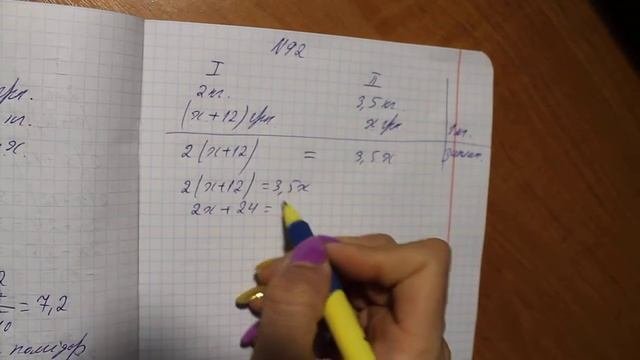 N92
I II
2 кг. 3,5 кг.
(x+12) грн x грн
2(x+12) = 3,5x
2(x+12) = 3,5x
2x + 24 =
грн.
кг.
x.
= 7,2
помідор